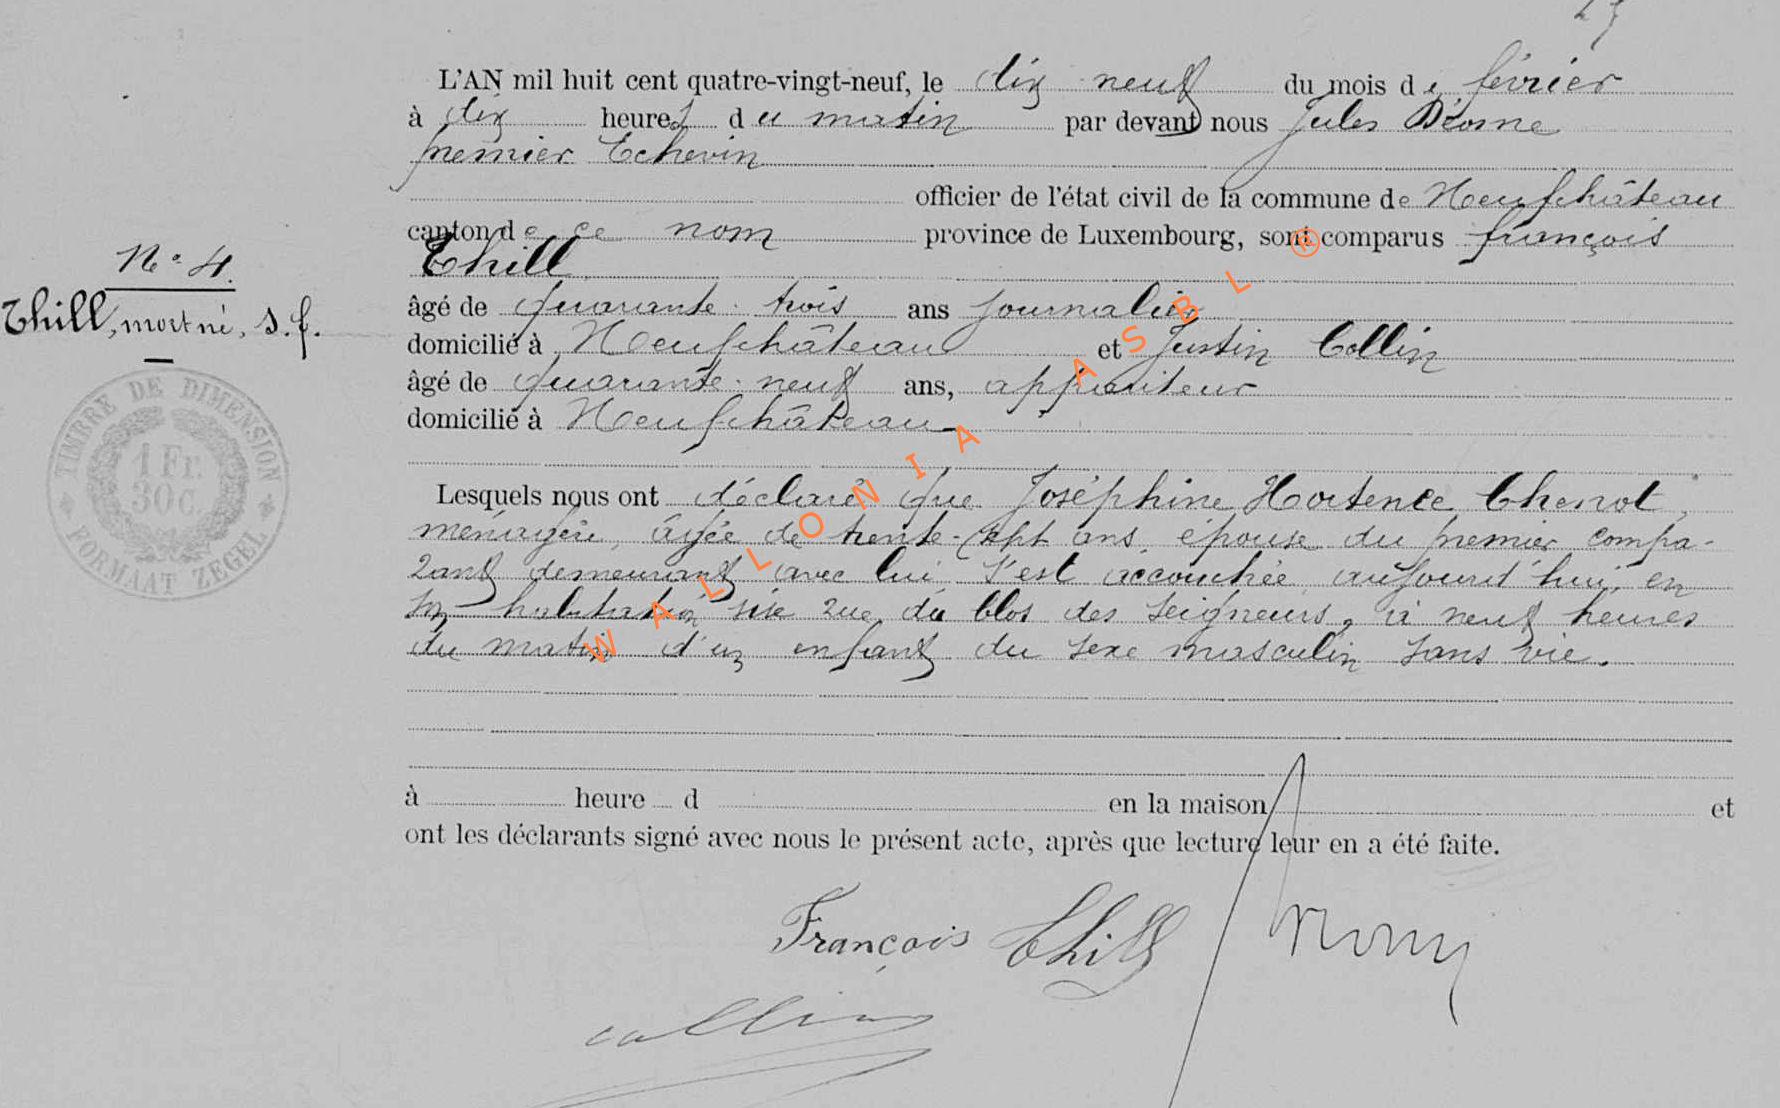 L'AN mil huit cent quatre-vingt-neuf, le dix neuf du mois de février
à dix heures du matin par devant nous Jules
premier Echevin
officier de l'état civil de la commune de Neufchâteau
canton de ce nom province de Luxembourg, sont comparus françois
Thill
N° 4.
Thill, mort né, s. f.
âgé de quarante-trois ans journalier
domicilié à Neufchâteau et Justin Collin
âgé de quarante-neuf ans, appariteur
domicilié à Neufchâteau
TIMBRE DE DIMENSION
1 Fr.
30 C.
FORMAAT ZEGEL
Lesquels nous ont déclaré que Joséphine Hortence Chenot,
ménagère, âgée de trente-sept ans, épouse du premier compa-
rant demeurant avec lui s'est accouchée aujourd'hui, en
son habitation sise rue du Clos des Seigneurs, à neuf heures
du matin d'un enfant du sexe masculin sans vie.
à heure d en la maison et
ont les déclarants signé avec nous le présent acte, après que lecture leur en a été faite.
François Thill
collin
WALLONIA ASBL ®